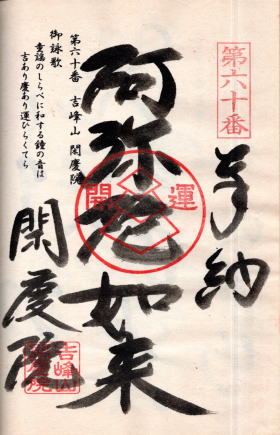 第六十番
奉納
阿弥陀如来
開運
第六十番 吉峰山 閑慶院
御詠歌
童謡のしらべに和する鐘の音は
吉あり慶あり運ひらくてら
閑慶院
吉峰山